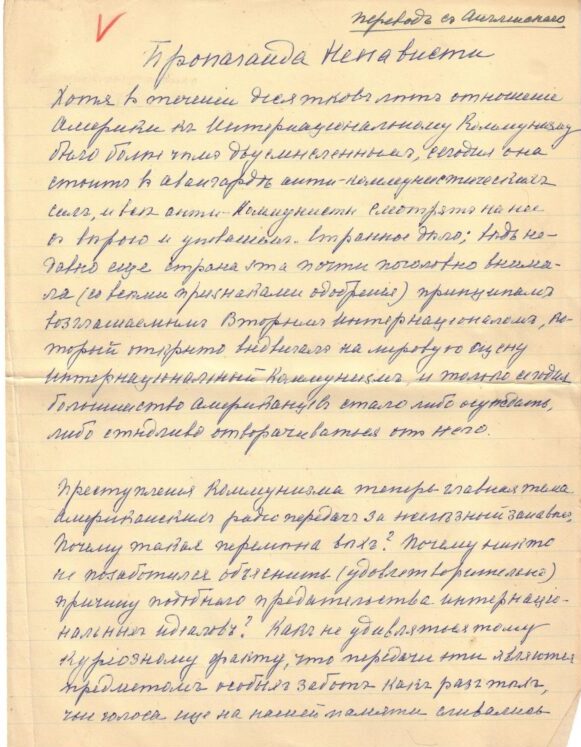 Переводъ съ Английскаго
Пропаганда Ненависти
Хотя въ теченіи десятковъ лѣтъ отношеніе
Америки къ Интернаціональному Коммунизму
было болѣе чѣмъ двусмысленнымъ, сегодня она
стоитъ въ авангардѣ анти-коммунистическихъ
силъ, и всѣ анти-Коммунисты смотрятъ на нее
съ вѣрою и упованіемъ. Странное дѣло; вѣдь не-
давно еще страна эта почти поголовно внима-
ла (со всѣми признаками одобренія) принципамъ
возглашаемымъ Вторымъ Интернаціоналомъ, ко-
торый открыто выдвигалъ на міровую сцену
Интернаціональный Коммунизмъ, и только сегодня
большинство Американцевъ стало либо осуждать,
либо стыдливо отворачиваться отъ него.
Преступленія Коммунизма теперь главная тема
Американскихъ радіо передачъ за желѣзный занавѣсъ.
Почему такая перемѣна вѣхъ? Почему никто
не позаботился объяснить (удовлетворительно)
причину подобнаго предательства интернаці-
нальныхъ идеаловъ? Какъ не удивляться тому
курьозному факту, что передачи эти являются
предметомъ особыхъ заботъ какъ разъ тѣхъ,
чьи голоса еще на нашей памяти сливались